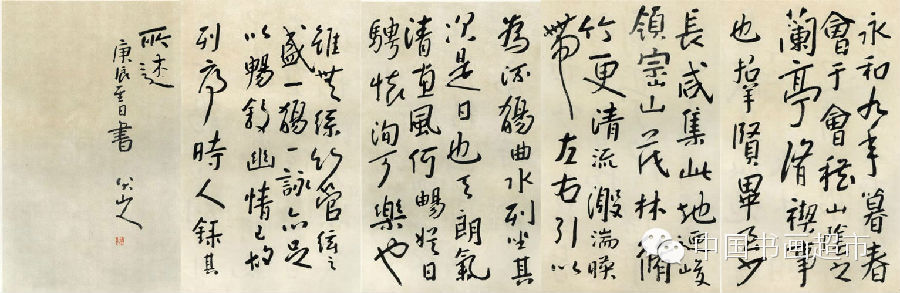 永和九年暮春
會于會稽山陰之
蘭亭脩禊事
也羣賢畢至少
長咸集此地迺峻
領崇山茂林脩
竹更清流激湍暎
帶左右引以
為流觴曲水列坐其
次是日也天朗氣
清惠風和暢娛目
騁懷洵可樂也
雖無絲竹管絃之
盛一觴一詠亦足
以暢敘幽情已故
列序時人錄其
所述
庚辰至日書
八大山人
中国书画超市